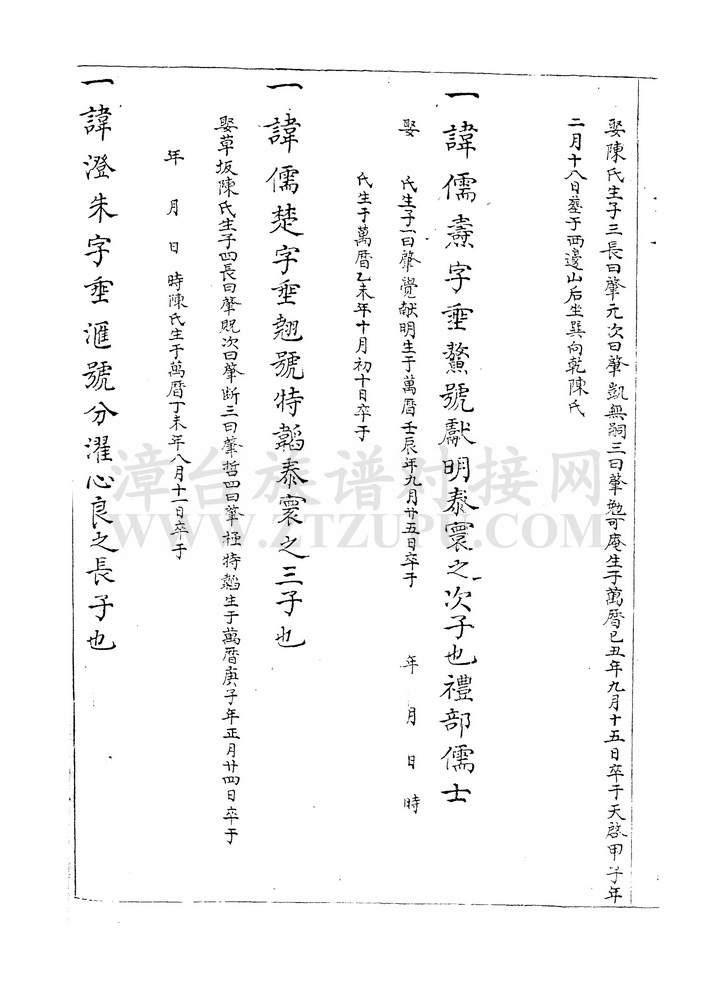 娶陳氏生子三長曰肇元次曰肇凱無嗣三曰肇勉可庵生于萬曆己丑年九月十五日卒于天啓甲子年
二月十八日葬于西邊山后坐巽向乾陳氏
一諱儒燾字垂鰲號獻明泰寰之次子也禮部儒士
娶 氏生子一曰肇覺献明生于萬曆壬辰年九月廿五日卒于 年 月 日 時
氏生于萬曆乙未年十月初十日卒于
一諱儒楚字垂翹號特韜泰寰之三子也
娶草坂陳氏生子四長曰肇貺次曰肇断三曰肇哲四曰肇 特韜生于萬曆庚子年正月廿四日卒于
年 月 日 時陳氏生于萬曆丁未年八月十一日卒于
一諱澄朱字垂滙號分濯心良之長子也
漳台族谱对接网
WWW.ZTZUPU.COM